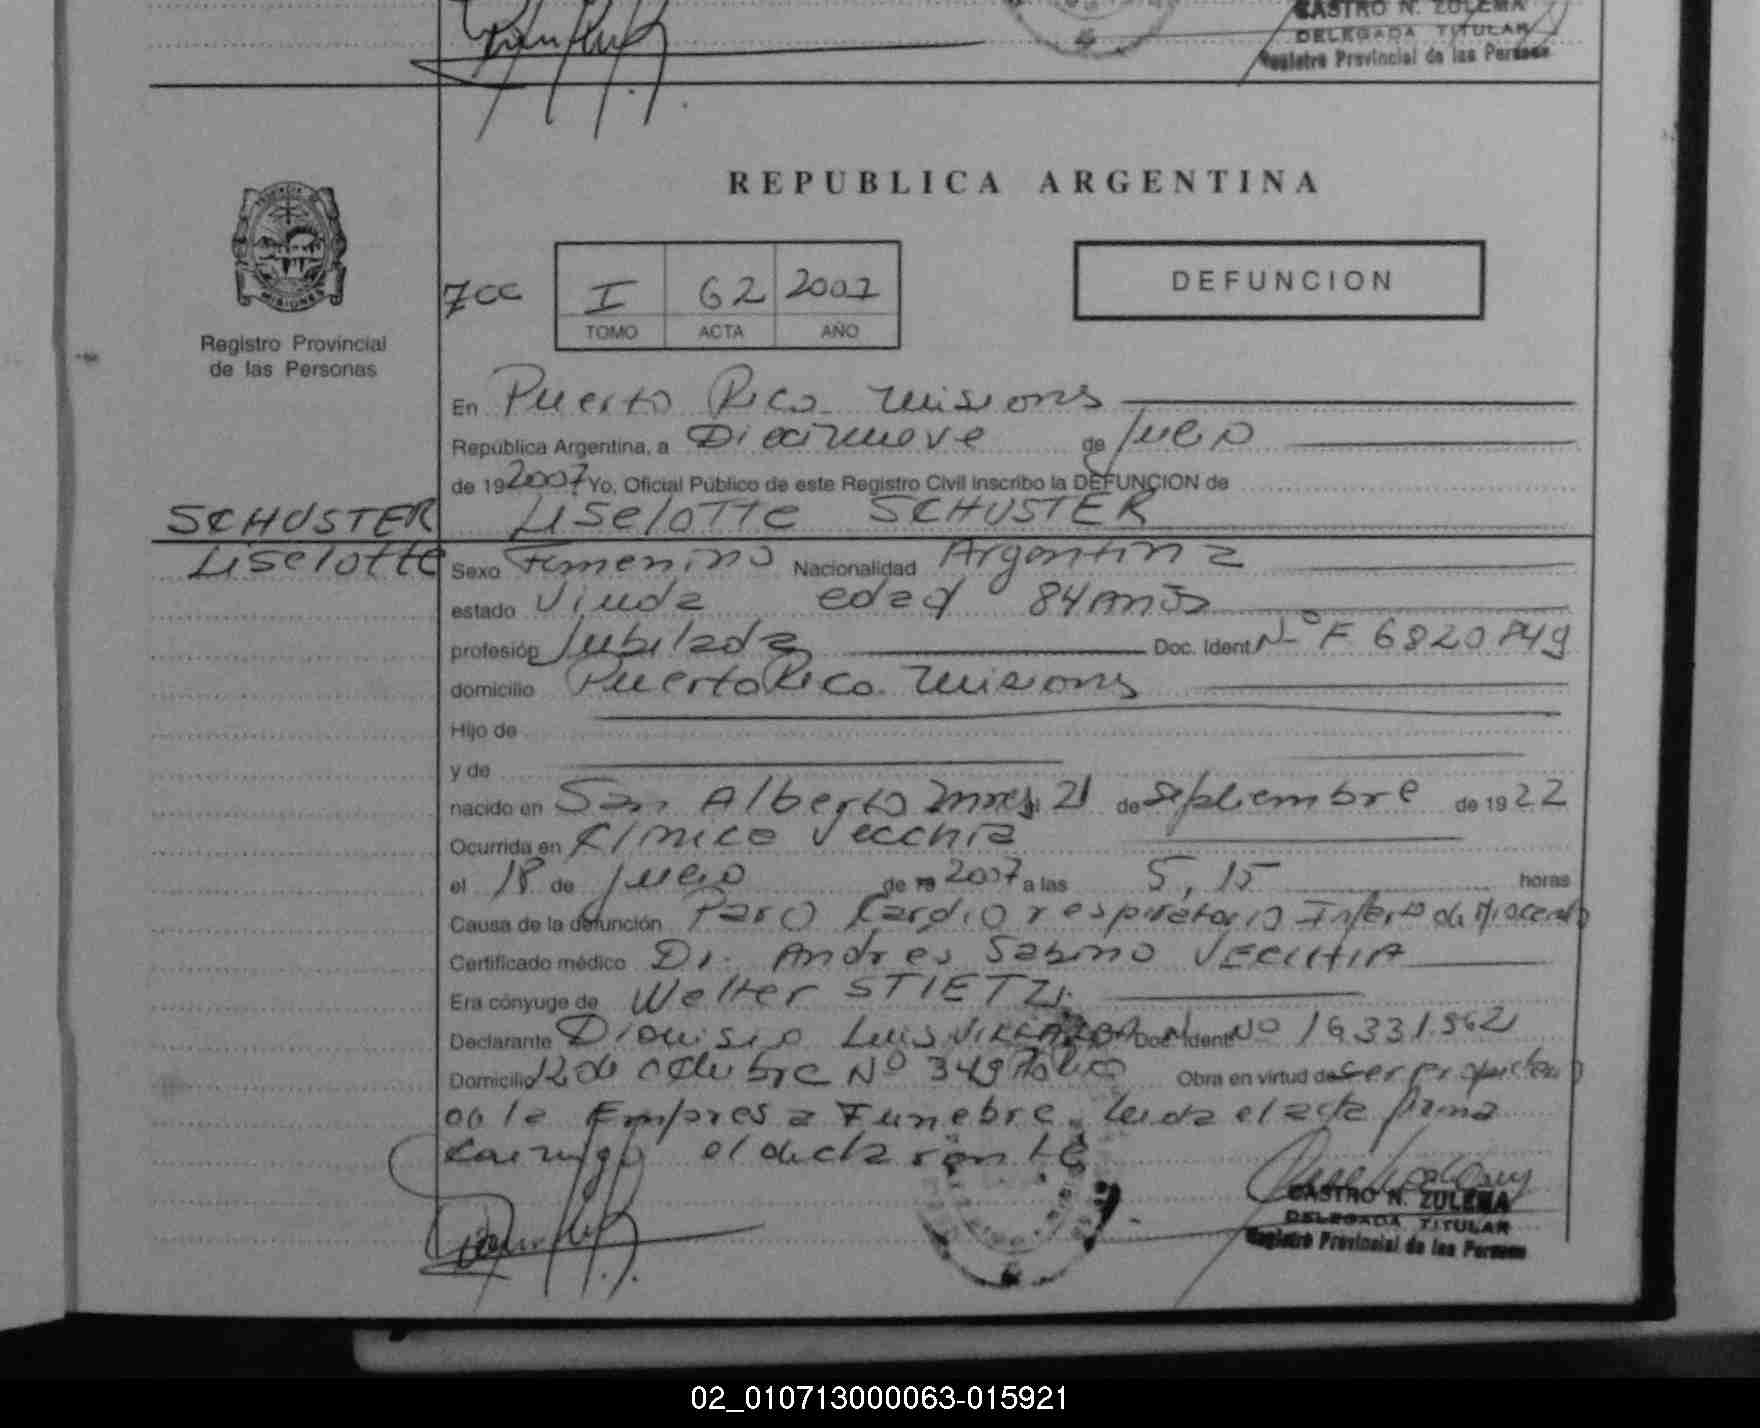 CASTRO N. ZULEMA
DELEGADA TITULAR
Registro Provincial de las Personas
REPUBLICA ARGENTINA
MISIONES
Registro Provincial
de las Personas
7cc I 62 2007
TOMO ACTA AÑO
DEFUNCION
En Puerto Rico Misiones
República Argentina, a Diecinueve de Julio
de 19 2007 Yo, Oficial Público de este Registro Civil inscribo la DEFUNCION de
SCHUSTER Liselotte SCHUSTER
Liselotte Sexo Femenino Nacionalidad Argentina
estado Viuda edad 84 años
profesión Jubilada Doc. Ident. Nº F 6820849
domicilio Puerto Rico Misiones
Hijo de
y de
nacido en San Alberto Mnes el 21 de septiembre de 1922
Ocurrida en Clinica Vecchia
el 18 de Julio de 19 2007 a las 5,15 horas
Causa de la defunción Paro Cardio respiratorio Infarto de Miocardio
Certificado médico Dr. Andres Sabino VECCHIA
Era cónyuge de Welter STIETZ
Declarante Dionisio Luis VILLALBA Doc. Ident. Nº 16.331.562
Domicilio 12 de octubre Nº 349 Pto Rico Obra en virtud de ser propietario
de la Empresa Funebre. Leida el acta firma
conmigo el declarante
CASTRO N. ZULEMA
DELEGADA TITULAR
Registro Provincial de las Personas
02_010713000063-015921